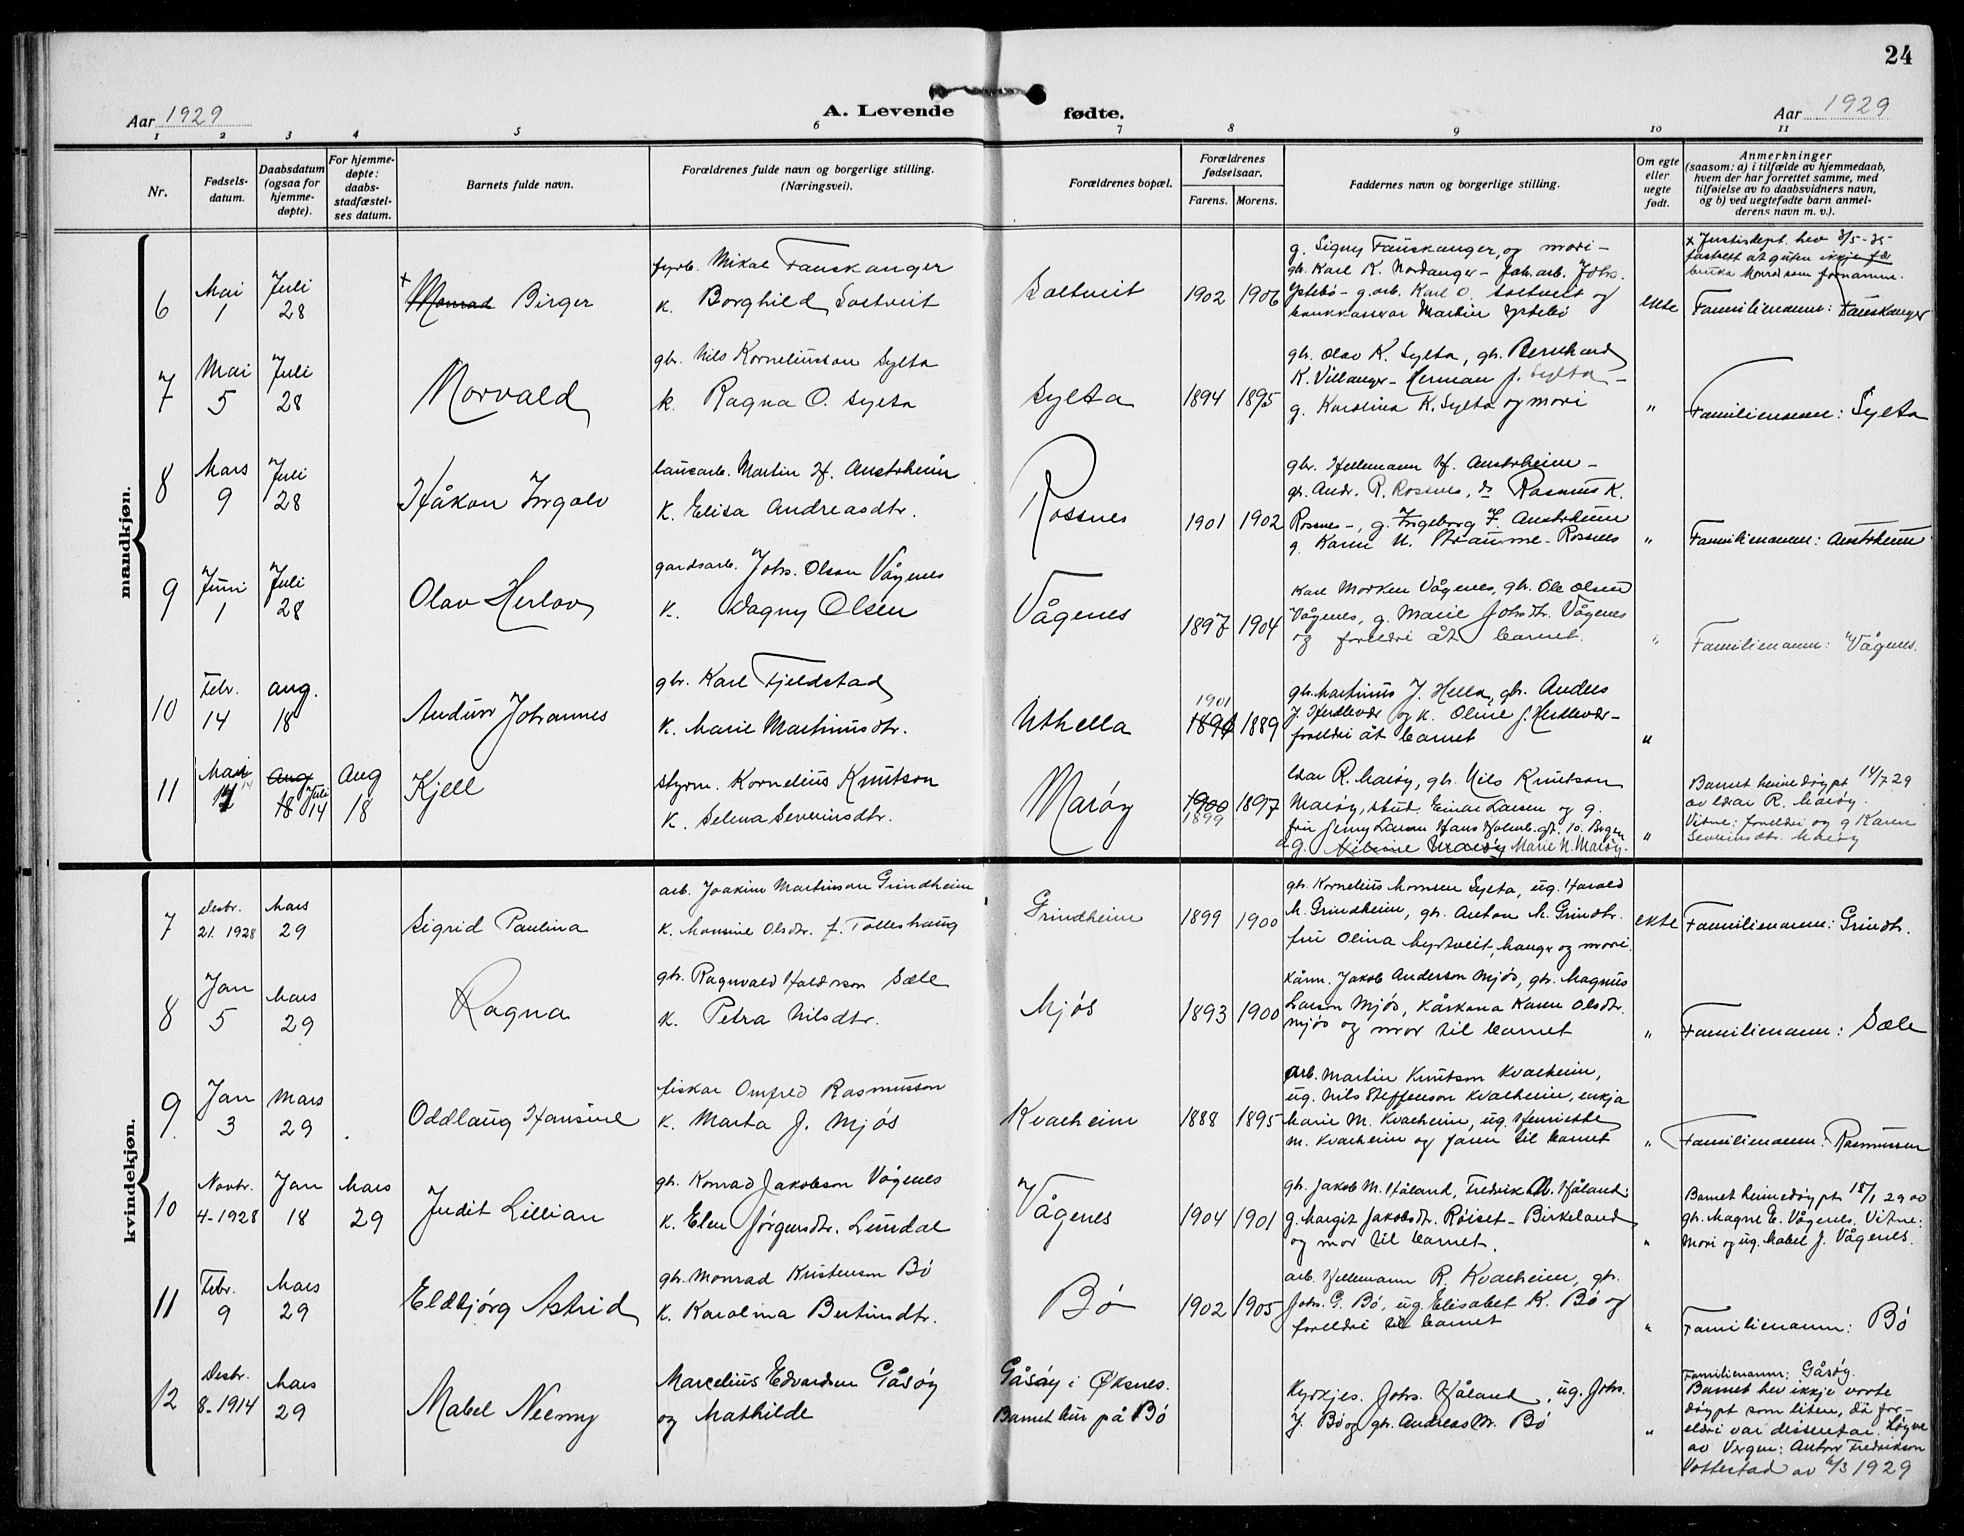 24
Aar 1929
A. Levende fødte.
Aar 1929
1 2 3 4 5 6 7 8 9 10 11
Nr.
Fødsels-
datum.
Daabsdatum
(ogsaa for
hjemme-
døpte).
For hjemme-
døpte:
daabs-
stadfæstel-
ses datum.
Barnets fulde navn.
Forældrenes fulde navn og borgerlige stilling.
(Næringsvei).
Forældrenes bopæl.
Forældrenes
fødselsaar.
Farens. Morens.
Faddernes navn og borgerlige stilling.
Om egte
eller
uegte
født.
Anmerkninger
(saasom: a) i tilfælde av hjemmedaab,
hvem der har forrettet samme, med
tilføielse av to daabsvidners navn,
og b) ved uegtefødte barn anmel-
derens navn m. v.).
mandkjøn.
6
Mai
1
Juli
28
x Monrad Birger
fyrb. Mikal Fauskanger
k. Borghild Soltveit
Soltveit
1902 1906
g. Signy Fauskanger, og mori -
gb. Karl K. Nordanger - Joh. arb. Johs.
Ystebø - g. arb. Karl O. Soltveit og
bankkasserar Martin Ystebø
ekte
x Justisdept. hev 3/5-35
fastsett at guten ikkje fær
bruka Monrad som fornamn.
Familienamn: Fauskanger
7
Mai
5
Juli
28
Norvald
gb. Nils Korneliusson Sylta
k. Ragna O. Sylta
Sylta
1894 1895
gb. Olav K. Sylta, gb. Bernhard
K. Villanger - Herman J. Sylta -
g. Karolina K. Sylta og mori
"
Familienamn: Sylta
8
Mars
9
Juli
28
Håkon Ingolv
lausarb. Martin H. Austrheim
k. Elisa Andreasdtr.
Rossnes
1901 1902
gb. Hellemann H. Austrheim -
gb. Andr. R. Rossnes, ds Rasmus K.
Rossnes -, g. Ingeborg J. Austrheim
g. Karin N. Straume - Rossnes
"
Familienamn: Austrheim
9
Juni
1
Juli
28
Olav Herlov
gardsarb. Johs. Olson Vågenes
k. Dagny Olsen
Vågenes
1897 1904
Karl Morken Vågenes, gb. Ole Olsen
Vågenes, g. Marie Johsdtr. Vågenes
og foreldri åt barnet.
"
Familienamn: Vågenes.
10
Febr.
14
aug.
18
Andurr Johannes
gbr. Karl Fjeldstad
k. Marie Martinusdtr.
Uthella
1901
1891 1889
gb. Martinus J. Hella, gb. Anders
J. Herdlevær og k. Oline J. Herdlevær -
foreldri åt barnet
"
11
Mai
14
Aug
18 Juli 14
Aug
18
Kjell
styrm. Kornelius Knutson
k. Selma Severinsdtr.
Marøy
1900 1897
1899
Edar R. Marøy, gb. Nils Knutson
Marøy, stud. Einar Larsen og g.
fru Jenny Larsen Hans Holmb. gt. 10. Bergen
g. Nilsine Marøy Marie N. Marøy.
"
Barnet heimedøypt 14/7 29
av Edar R. Marøy.
Vitne: foreldri og g Karen
Severinsdtr. Marøy
kvindekjøn.
7
Desbr.
21. 1928
Mars
29
Sigrid Paulina
arb. Joakim Martinson Grindheim
k. Monsine Olsdtr. f. Tolleshaug
Grindheim
1899 1900
gb. Kornelius Monsen Sylta, ug. Harald
M. Grindheim, gb. Anton M. Grindh.
fru Olina Myrtveit, Manger og mori.
ekte
Familienamn: Grindh.
8
Jan
5
Mars
29
Ragna
gb. Ragnvald Haldorson Sæle
k. Petra Nilsdtr.
Mjøs
1893 1900
Kårm. Jakob Anderson Mjøs, gb. Magnus
Larson Mjøs, Kårkona Karen Olsdtr.
Mjøs og mor til barnet
"
Familienamn: Sæle
9
Jan
3
Mars
29
Oddlaug Hansine
fiskar Omfred Rasmusson
k. Marta J. Mjøs
Kvalheim
1888 1895
Arb. Martin Knutson Kvalheim,
ug. Nils Steffenson Kvalheim, enkja
Marie M. Kvalheim, ug. Henriette
M. Kvalheim og faren til barnet
"
Familienamn: Rasmussen
10
Novbr.
4-1928
Jan
18
Mars
29
Judit Lillian
gb. Konrad Jakobson Vågenes
k. Elen Jørgensdtr. Lundal
Vågenes
1904 1901
gb. Jakob M. Håland, Fredrik M. Håland:
g. Margit Jakobsdtr. Røiset - Birkeland
og mor til barnet.
"
Barnet heimedøypt 18/1 29 av
gb. Magne E. Vågenes. Vitne:
Mori og ug. Mabel J. Vågenes.
11
Febr.
9
Mars
29
Eldbjørg Astrid
gb. Monrad Kristenson Bø
k. Karolina Bertinsdtr.
Bø
1902 1905
arb. Hellemann R. Kvalheim, gb.
Johs. G. Bø, ug. Elisabet K. Bø og
foreldri til barnet
"
Familienamn: Bø
12
Desbr.
8-1914
Mars
29
Mabel Neenny
Marcelius Edvardsen Gåsøy
og Mathilde
Gåsøy i Øksnes.
Barnet bur på Bø
Kyrkjes. Johs. Håland, ug. Johs.
J. Bø og gb. Andreas M. Bø
"
Familienamn: Gåsøy.
Barnet hev ikkje vorte
døypt som liten, då for-
eldri var dissentar. Løyve
av Vergen: Anton Fredrikson
Vottestad av 6/3 1929